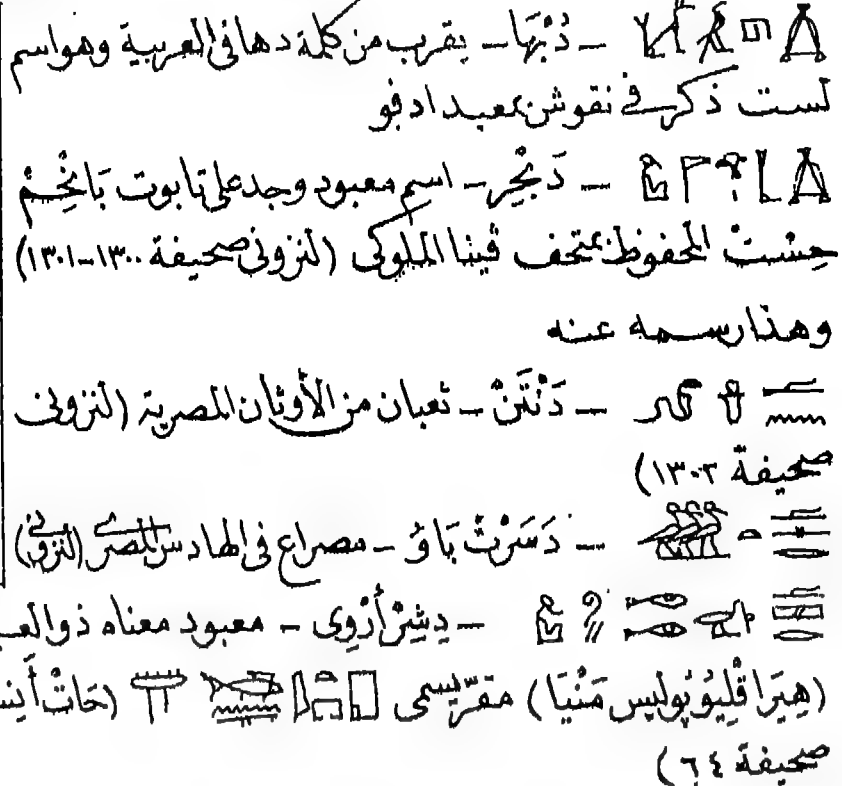 ـ دُبْهَا ـ يقرب من كلمة دها في العربية وهو اسم
لست ذكر في نقوش بمعبد ادفو
ـ دَبْخِر ـ اسم معبود وجد على تابوت بَانُخِمْ
حِسِتْ المحفوظ بمتحف ڤينا الملوكى (لنزونى صحيفة ١٣٠٠ ـ ١٣٠١)
وهذا رسمه عنه
ـ دَنْتَنْ ـ ثعبان من الأوثان المصرية (لنزونى
صحيفة ١٣٠٢)
ـ دَسَرْتْ بَاؤ ـ مصراع فى الهادس المصرى (لنزونى)
ـ دِشِرْ أَرْوِى ـ معبود معناه ذو
(هِيَرَا قْلِيُوْپُوليس مَنْيَا) مقرّ يسمى (حَاتْ
صحيفة ٦٤)